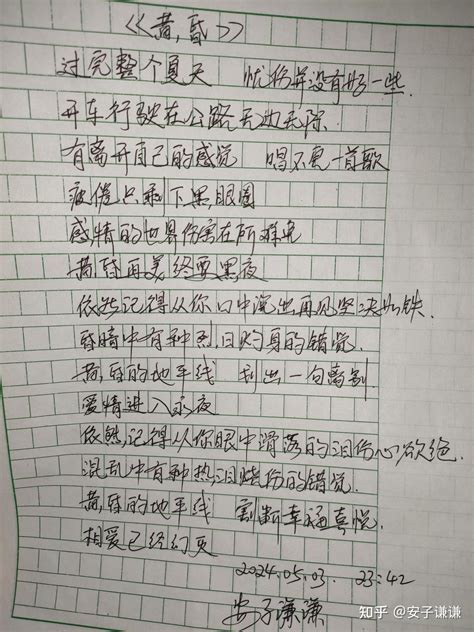 《黄昏》
过完整个夏天 忧伤并没有好一些
开车行驶在公路无边无际
有离开自己的感觉 唱不完一首歌
疲倦只剩下黑眼圈
感情的世界伤害在所难免
黄昏再美终要黑夜
依然记得从你口中说出再见坚决如铁
昏暗中有种烈日灼身的错觉
黄昏的地平线 划出一句离别
爱情进入永夜
依然记得从你眼中滑落的泪伤心欲绝
混乱中有种热泪烧伤的错觉
黄昏的地平线 割断幸福喜悦
相爱已经幻灭
2024.05.03. 23:42
安子谦谦
知乎 @安子谦谦